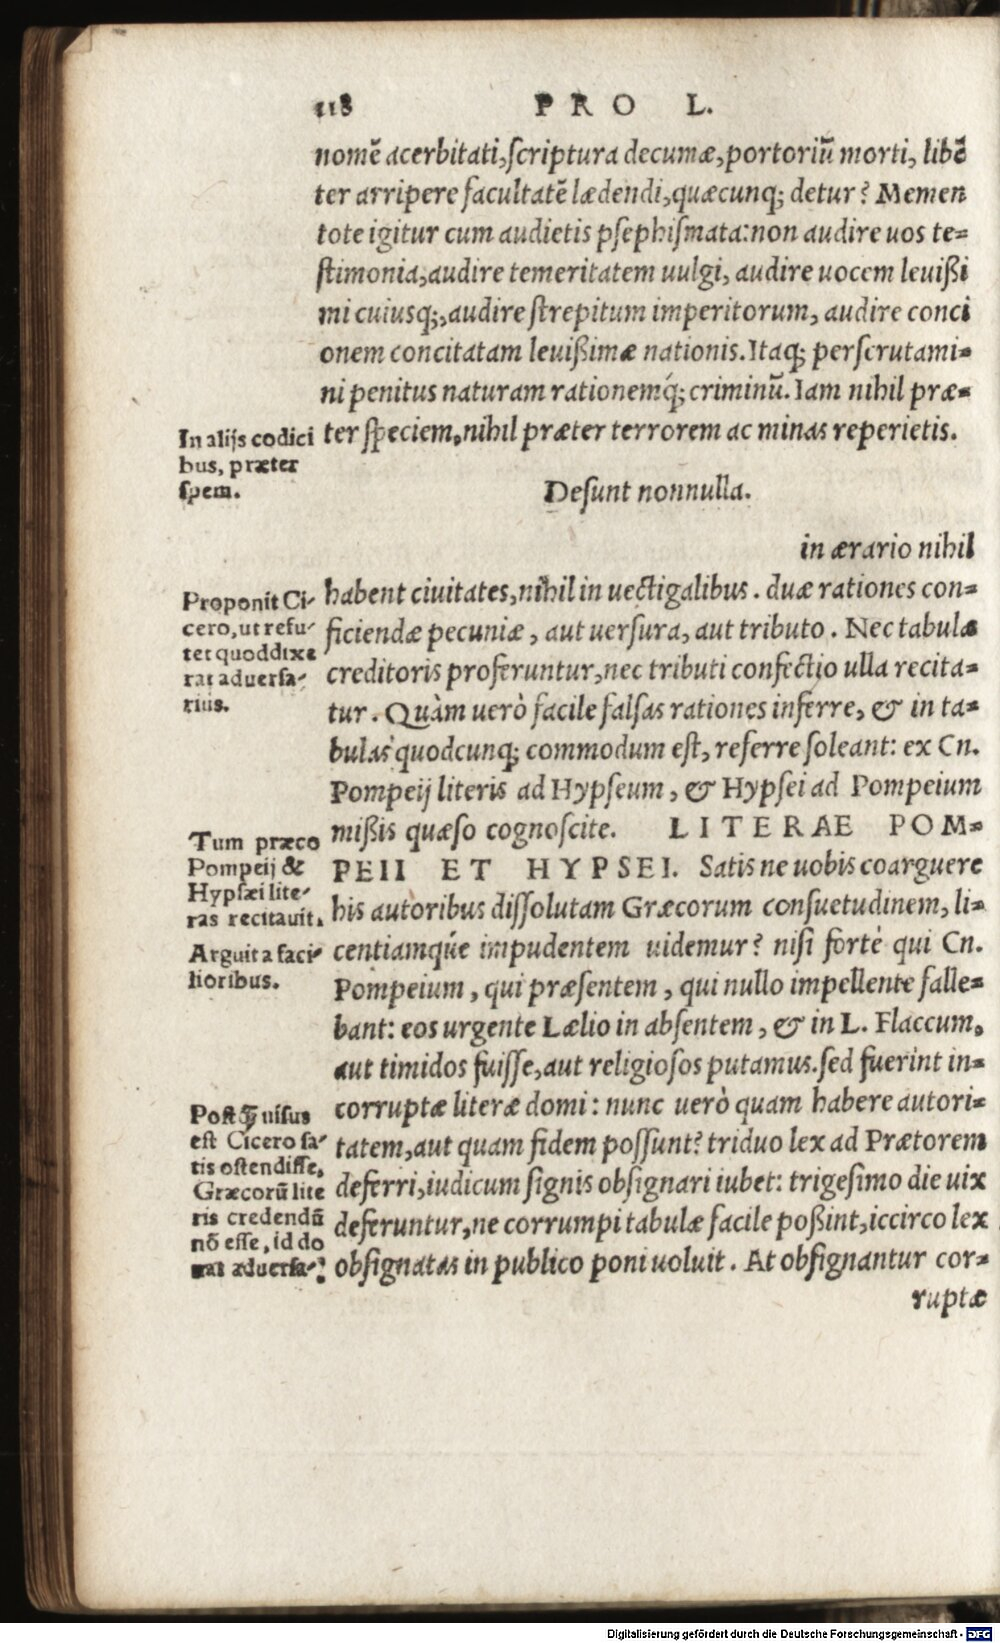 118 PRO L.
nomē acerbitati, ſcriptura decumæ, portoriū morti, libē
ter arripere facultatē lædendi, quæcunq; detur? Memen
tote igitur cum audietis pſephiſmata: non audire uos te=
ſtimonia, audire temeritatem uulgi, audire uocem leuißi
mi cuiusq;, audire ſtrepitum imperitorum, audire conci
onem concitatam leuißimæ nationis. Itaq; perſcrutami=
ni penitus naturam rationemq́; criminū. Iam nihil præ=
ter ſpeciem, nihil præter terrorem ac minas reperietis.
In alijs codici
bus, præter
ſpem.
Deſunt nonnulla.
in ærario nihil
habent ciuitates, nihil in uectigalibus. duæ rationes con=
ficiendæ pecuniæ, aut uerſura, aut tributo. Nec tabulæ
creditoris proferuntur, nec tributi confectio ulla recita=
tur. Quàm uerò facile falſas rationes inferre, & in ta=
bulas quodcunq; commodum eſt, referre ſoleant: ex Cn.
Pompeij literis ad Hypſeum, & Hypſei ad Pompeium
mißis quæſo cognoſcite. LITERAE POM=
PEII ET HYPSEI. Satis ne uobis coarguere
his autoribus diſſolutam Græcorum conſuetudinem, li=
centiamq́ue impudentem uidemur? niſi fortè qui Cn.
Pompeium, qui præſentem, qui nullo impellente falle=
bant: eos urgente Lælio in abſentem, & in L. Flaccum,
aut timidos fuiſſe, aut religioſos putamus. ſed fuerint in=
corruptæ literæ domi: nunc uerò quam habere autori=
tatem, aut quam fidem poſſunt? triduo lex ad Prætorem
deferri, iudicum ſignis obſignari iubet: trigeſimo die uix
deferuntur, ne corrumpi tabulæ facile poßint, iccirco lex
obſignatas in publico poni uoluit. At obſignantur cor=
ruptæ
Proponit Ci-
cero, ut refu-
tet quod dixe
rat aduerſa-
rius.
Tum præco
Pompeij &
Hypſæi lite-
ras recitauit.
Arguit a faci-
lioribus.
Poſtꝗ̃ uiſus
eſt Cicero ſa-
tis oſtendiſſe,
Græcorū lite
ris credendū
nō eſſe, id do
nat aduerſa-
Digitalisierung gefördert durch die Deutsche Forschungsgemeinschaft - DFG